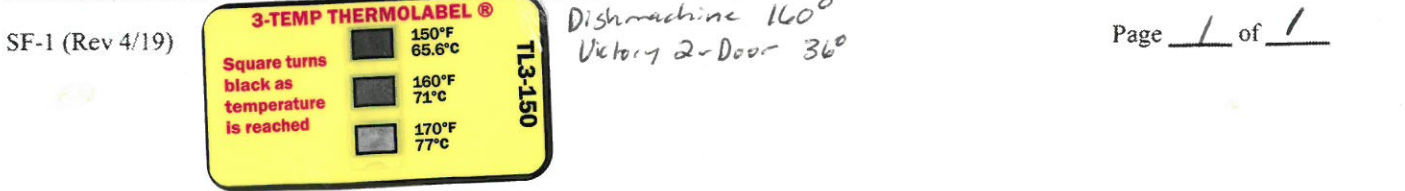 SF-1 (Rev 4/19)
3-TEMP THERMOLABEL ®
Square turns
black as
temperature
is reached
150°F
65.6°C
160°F
71°C
170°F
77°C
TL3-150
Dishmachine 160°
Victory 2-Door 36°
Page 1 of 1